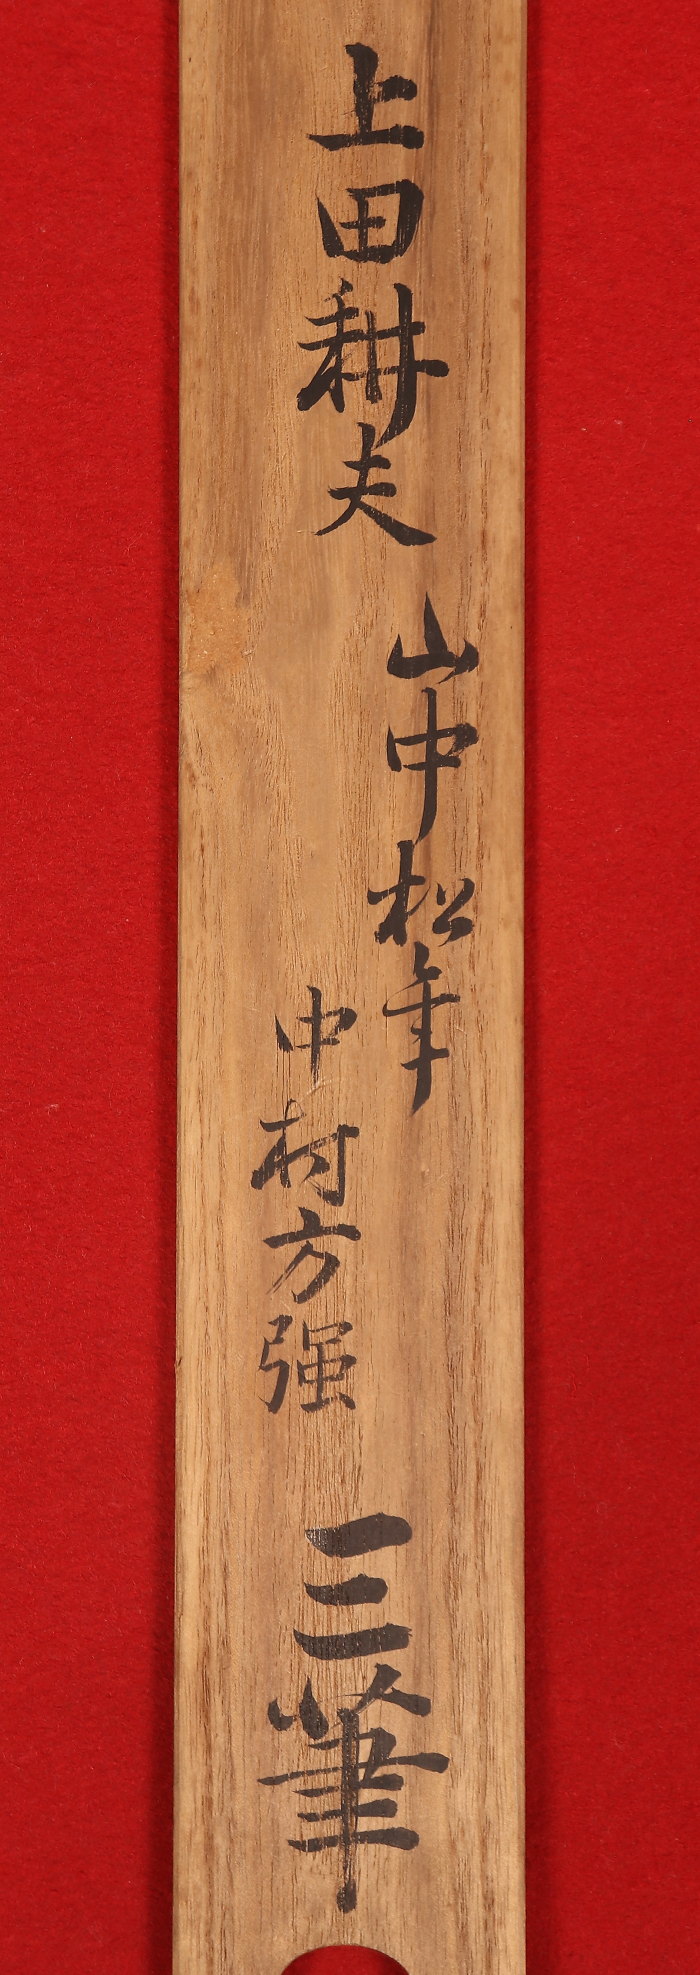 上田耕夫
山中松年
中村方强
三筆